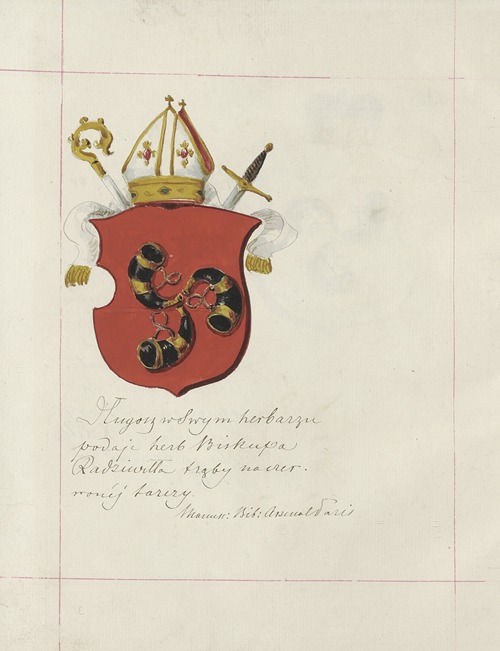 Długosz w Swym herbarzu
podaje herb Biskupa
Radziwiłła trąby na czer-
wonéj tarczy.
Manus: Bib: Arsenal Paris